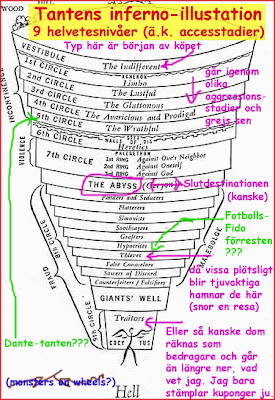 WOOD
Tantens inferno-illustation
9 helvetesnivåer (ä.k. accesstadier)
Typ här är början av köpet
VESTIBULE
The Indifferent
ACHERON
1ST CIRCLE
Limbo
2nd CIRCLE
The Lustful
3rd CIRCLE
The Gluttonous
4th CIRCLE
The Avaricious and Prodigal
5th CIRCLE
The Wrathful
STYX
WALLS OF DIS
6th CIRCLE
Heretics
PHLEGETHON
7th CIRCLE
1st RING Against One's Neighbor
2nd RING Against Self
3rd RING Against God
INCONTINENCE
VIOLENCE
går igenom
olika
aggressions-
stadier och
grejs sen
THE ABYSS (Geryon)
Slutdestinationen
(kanske)
Panders and Seducers
Flatterers
Simonists
Soothsayers
Grafters
Hypocrites
Thieves
False Counselors
Sowers of Discord
Counterfeiters / Falsifiers
8th CIRCLE
FRAUD
MALEBOLGE
Fotbolls-
Fido
förresten
???
då vissa plötsligt
blir tjuvaktiga
hamnar de här
(snor en resa)
GIANTS' WELL
9th CIRCLE
Traitors
COCYTUS
Dante-tanten???
Eller så kanske dom
räknas som
bedragare och går
än längre ner, vad
vet jag. Jag bara
stämplar kuponger ju.
(monsters on wheels?)
Hell